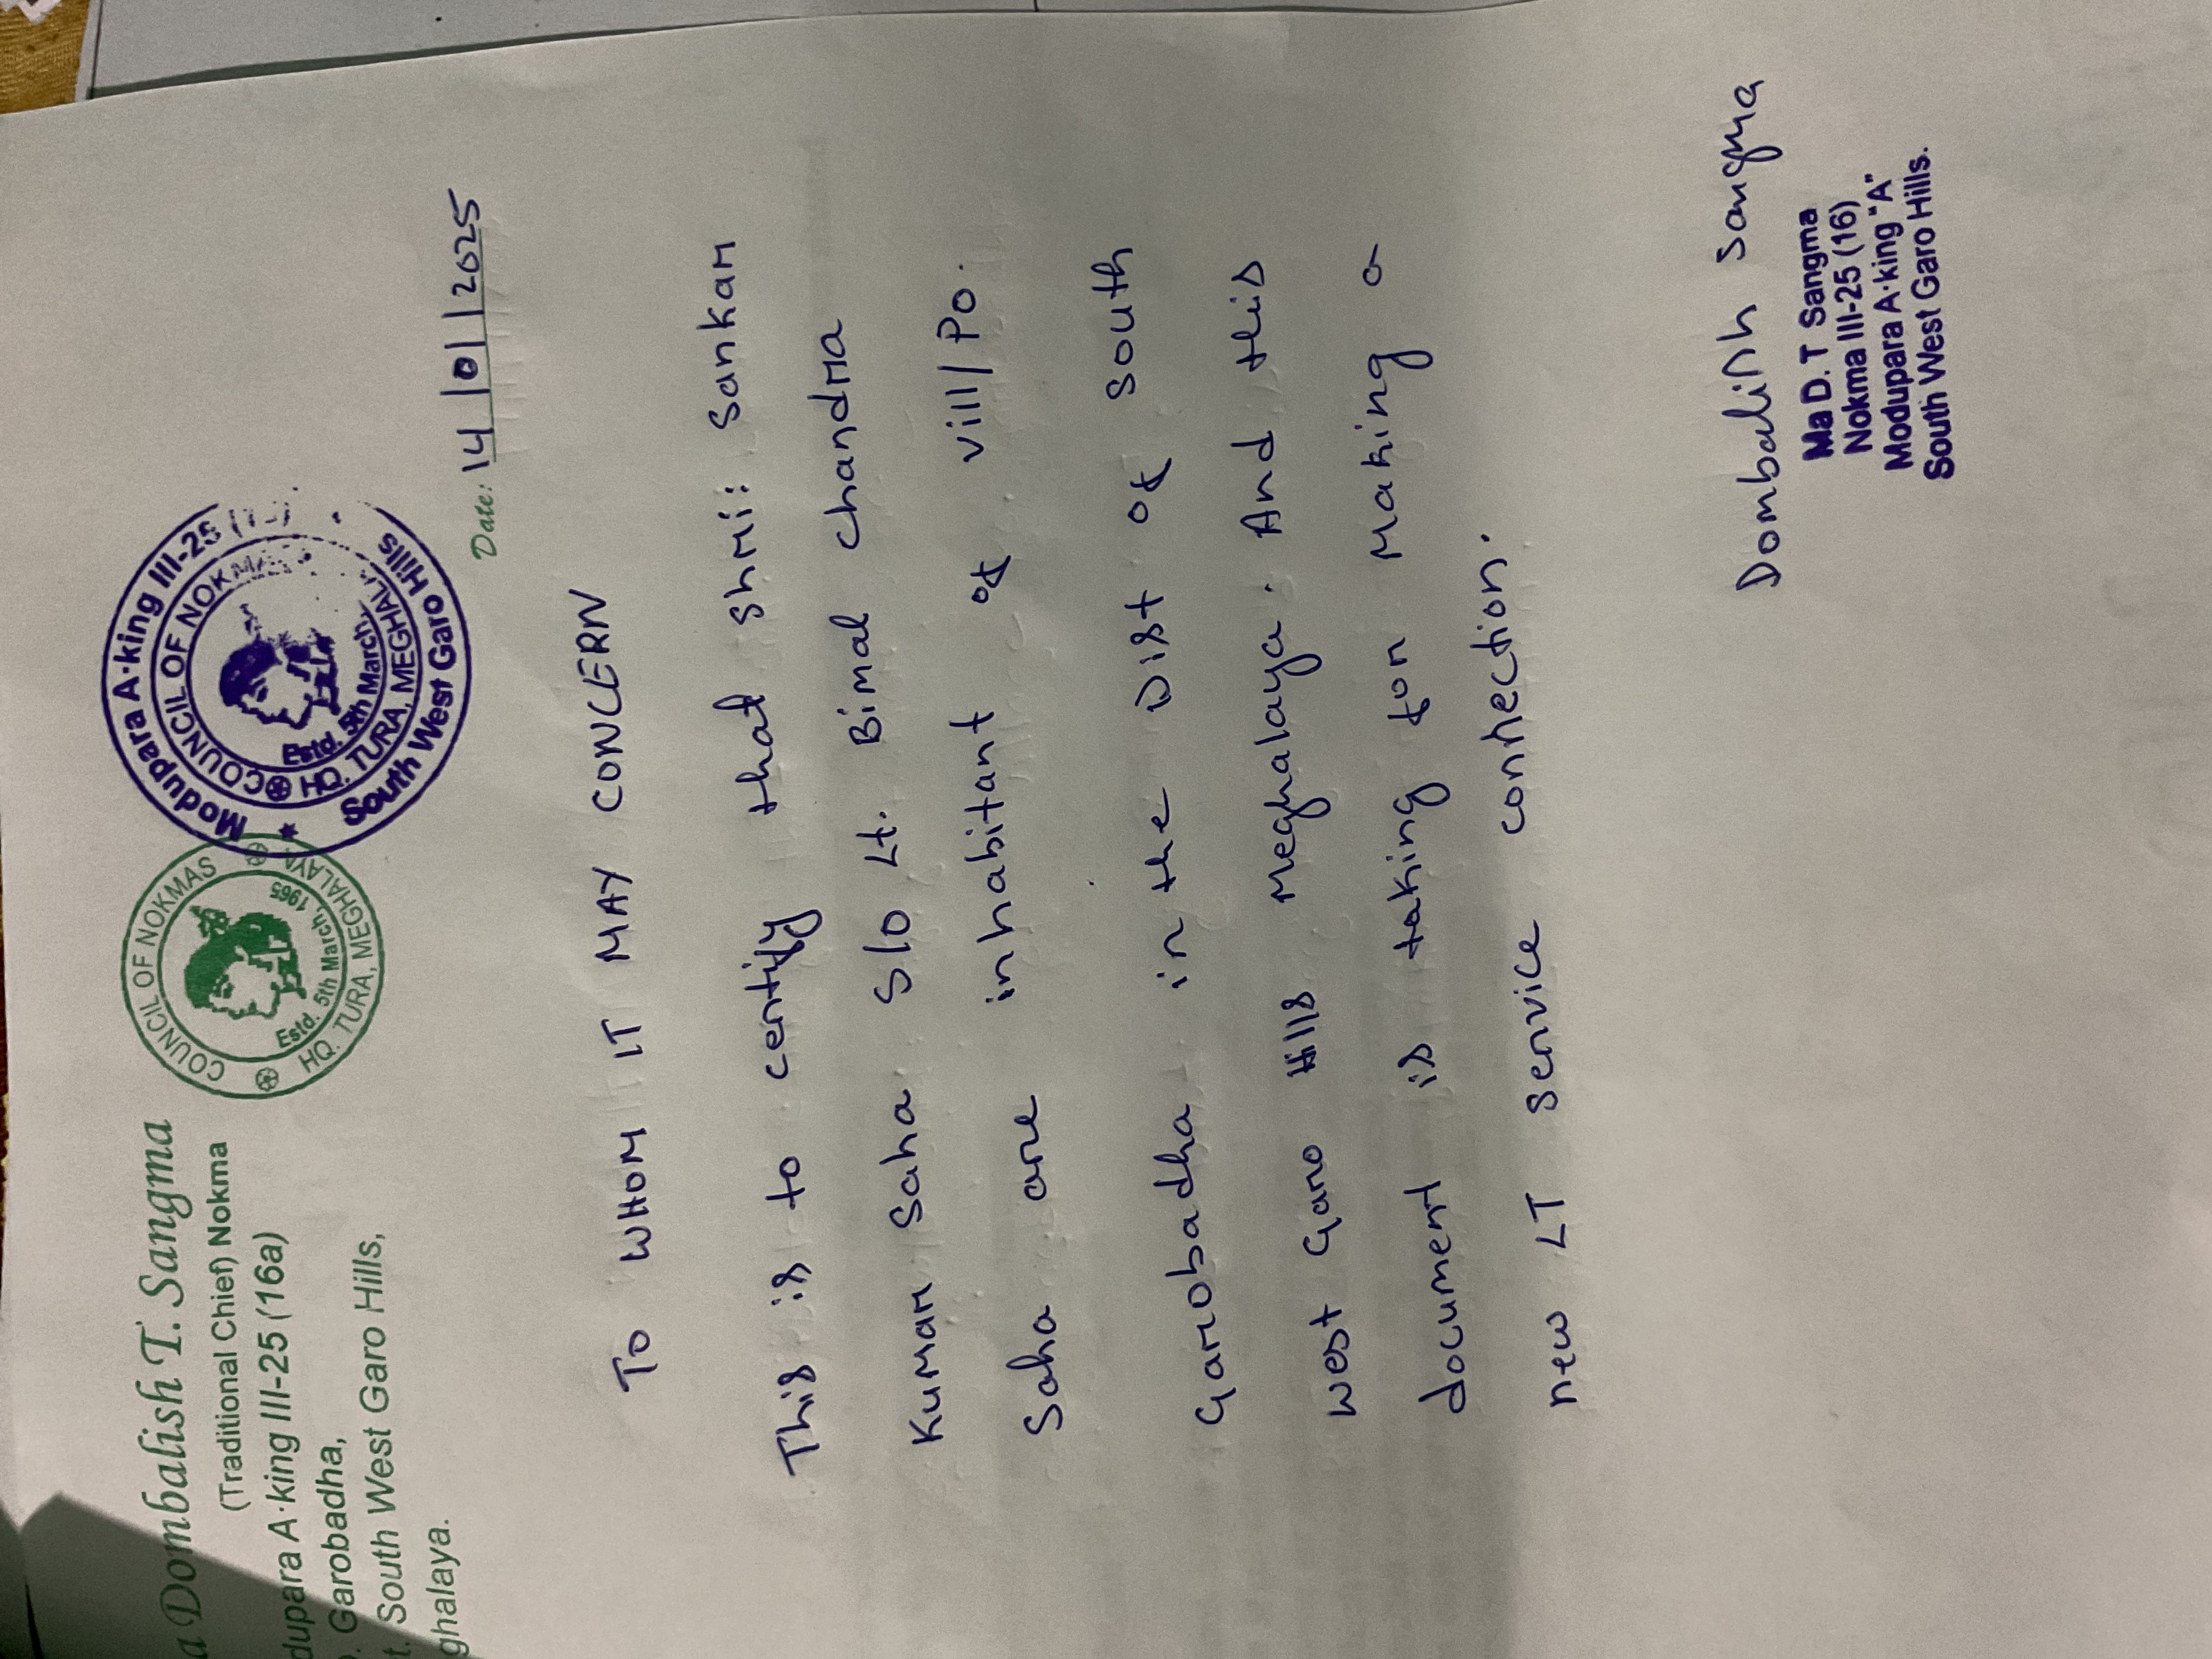 a Dombalish T. Sangma
(Traditional Chief) Nokma
dupara A·king III-25 (16a)
Garobadha,
t. South West Garo Hills,
ghalaya.
COUNCIL OF NOKMAS
Estd. 5th March, 1965
HQ. TURA, MEGHALAYA
Modupara A·king III-25
COUNCIL OF NOKMA
Estd. 5th March
HQ. TURA, MEGHALA
South West Garo Hills
Date: 14/01/2025
TO WHOM IT MAY CONCERN
This is to certify that Shri: Sankar
Kumar Saha S/o Lt. Bimal Chandra
Saha are inhabitant of vill/PO.
Garobadha in the Dist of South
West Garo Hills Meghalaya. And this
document is taking for making a
new LT service connection.
Dombalish Sangma
Ma D.T Sangma
Nokma III-25 (16)
Modupara A·king "A"
South West Garo Hills.